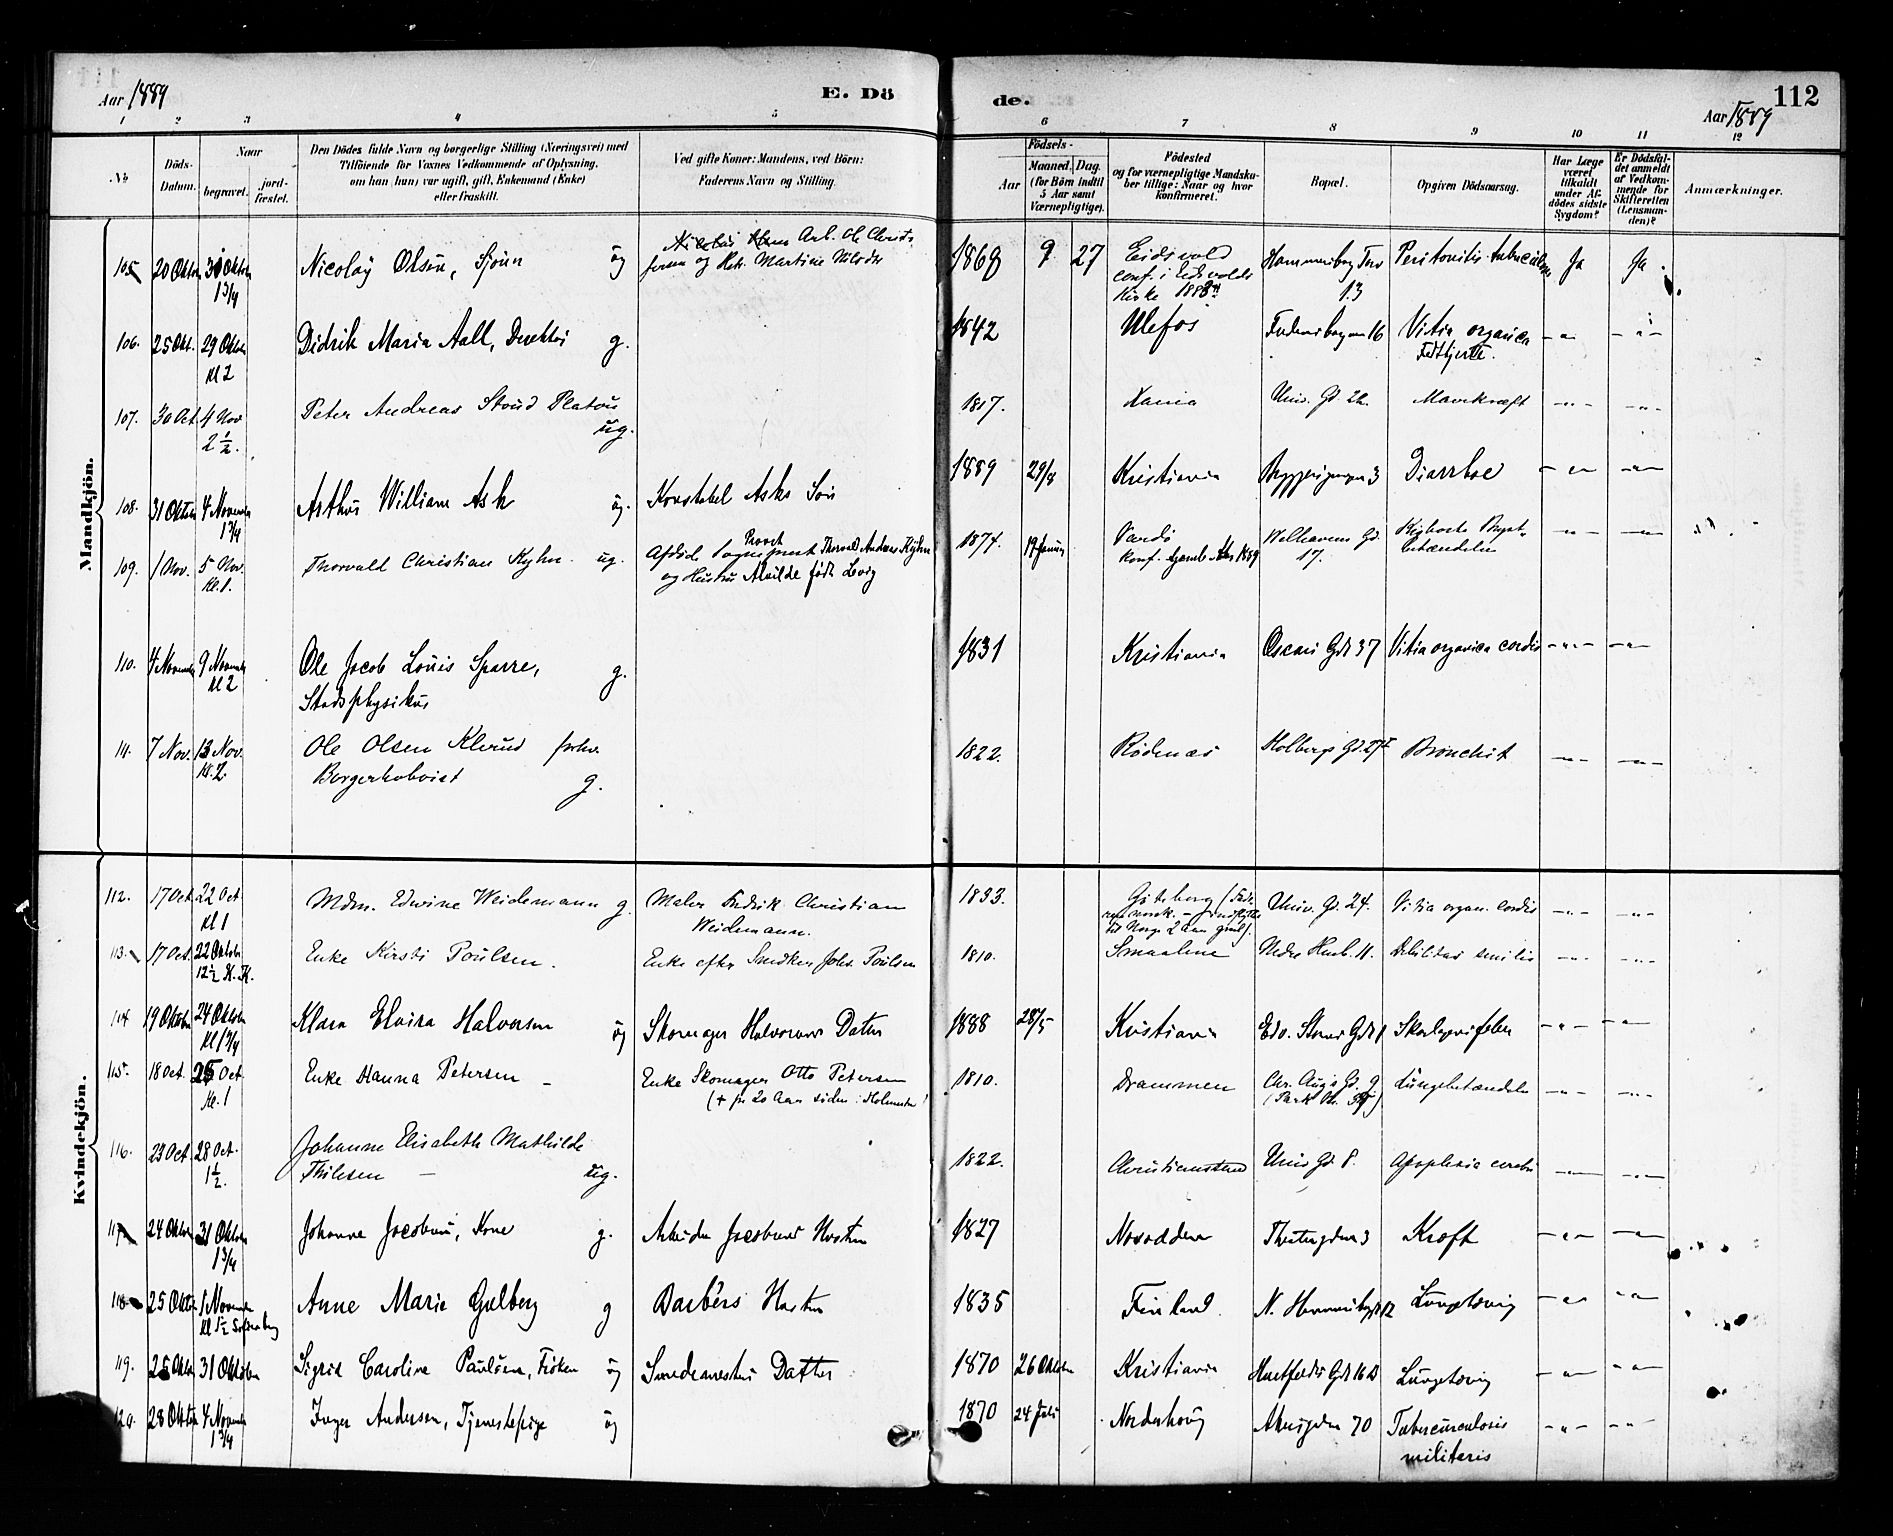 Aar 1889
E. Dö
de.
112
Aar 1889
1 2 3 4 5 6 7 8 9 10 11 12
No
Döds-
Datum.
Naar
begravet.
jord-
fæstet.
Den Dödes fulde Navn og borgerlige Stilling (Næringsvei) med
Tilföiende for Voxnes Vedkommende af Oplysning,
om han (hun) var ugift, gift, Enkemand (Enke)
eller fraskilt.
Ved gifte Koner: Mandens, ved Börn:
Faderens Navn og Stilling.
Födsels-
Aar
Maaned. Dag.
(for Börn indtil
5 Aar samt
Værnepligtige).
Födested
og for værnepligtige Mandska-
ber tillige: Naar og hvor
konfirmeret.
Bopæl.
Opgiven Dödsaarsag.
Har Læge
været
tilkaldt
under Af-
dödes sidste
Sygdom?
Er Dödsfal-
det anmeldt
af Vedkom-
mende for
Skifteretten
(Lensman-
den)?
Anmærkninger.
Mandkjön.
105 20 Oktbr 31 Oktbr Nicolay Olsen, ug Arb. Ole Christ- 1868 9 27 Eidsvold Hammersborg Torv Peritonitis tuberculosa Ja Ja
1 3/4 og Martine Nilsdr conf. i Eidsvolds 13
Kirke
106. 25 Okt. 29 Oktbr Didrik Maria Aall, Direktør g. 1842 Ulefos 16 Vitia organica -"- -"-
Kl 2 Fedthjerte.
107. 30 Oct. 4 Nov Peter Andreas Stoud Platou 1817. Xania Univ. Gd. 22. Mavekræft -"- -"-
2 1/2. ug.
108. 31 Oktbr 4 Novembr Arthur William Ask ug. Konstabel Asks Søn 1889 29/8 Kristiania Bryggerigangen 3 Diarrhoe -"- -"-
1 3/4
109. 1 Nov. 5 Nov. Thorvald Christian Kyhn. ug. Afdød Sognepræst Provst Thorvald Andreas Kyhn 1874. 19 Januar Vardö Welhavens Gd. -"- -"-
Kl. 1. og Hustru Alvilde født Lovig Konf. 1889 17. betændelse
110. 4 Novembr 9 Novembr Ole Jacob Louis Sparre, g. 1831 Kristiania Oscars Gd 37 Vitia organica cordis -"- -"-
Kl 2 Stadsphysikus
111. 7 Nov. 13 Nov. Ole Olsen Klerud forhv. 1822. Rødenæs Holbergs Gd. 27 I Bronchit -"- -"-
Kl. 2 g.
Kvindekjön.
112. 17 Oct. 22 Oct Mdm. Edvine Weidemann g. Maler Fredrik Christian 1833. Göteborg Univ. Gd. 24. Vitia organ. cordis -"- -"-
Kl 1 Weidemann.
113. 17 Oct. 22 Oktobr Enke Kirsti Poulsen. Enke efter Snedker Johs. Poulsen 1810. Smaalene 11. Debilitas senilis -"- -"-
12 1/2 K.K.
114 19 Oktobr 24 Oktobr Klara Elvira Halvorsen ug Skomager Halvorsens Datter 1888 28/5 Kristiania Edv. Storms Gd 1 Skarlagensfeber -"- -"-
Kl 1 3/4
115. 18 Oct. 25 Oct. Enke Hanna Petersen – Enke Skomager Otto Petersen 1810. Drammen Chr. Aug's Gd. 9. Lungebetændelse -"- -"-
Kl. 1 († for 20 Aar siden i Holmestr.)
116. 23 Oct. 28 Oct. Johanne Elisabeth Mathilde 1822. Christianssand Univ Gd 8. Apoplexia cerebri -"- -"-
1 1/2. Thilesen – ug.
117 24 Oktbr 31 Oktobr Johanne Jacobsen, Kone g. Arbeider Jacobsens Hustru 1827 Nesodden 3 Kræft -"- -"-
1 3/4
118 25 Oktbr 1 Novembr Anne Marie Gulberg g Barbérs Hustru 1835 Finland. N. Hammersborg 12 Lungetæring -"- -"-
Kl 1 1/2
119. 25 Oktbr 31 Oktober Sigrid Caroline Paulsen, Frøken ug Datter 1870 26 Oktober Kristiania Huitfelds Gd 16 B Lungetæring -"- -"-
120. 28 Oktbr 4 Novembr Inger Andersen, Tjenestepige ug 1870 24 Juli Norderhoug Akersgaden 70 Tuberculosis -"- -"-
1 3/4 miliaris